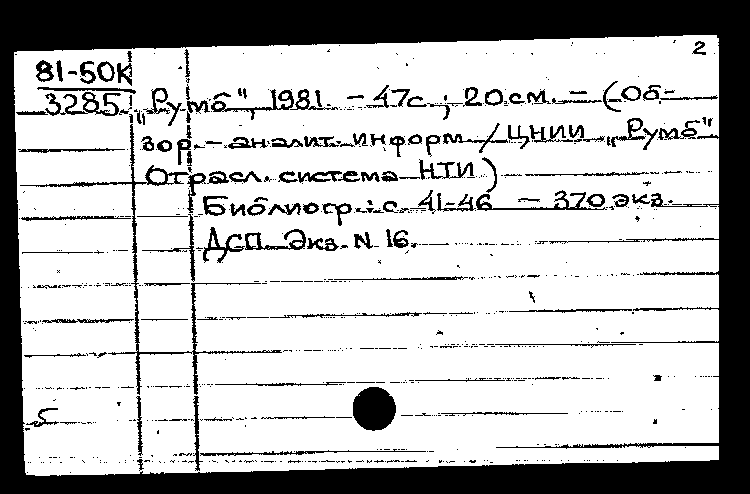 2
81-50К
3285 „Румб", 1981. - 47с.; 20см. - (Об-
зор.-аналит. информ. / ЦНИИ „Румб".
Отрасл. система НТИ)
Библиогр.: с. 41-46 - 370 экз.
ДСП. Экз. N 16.
5